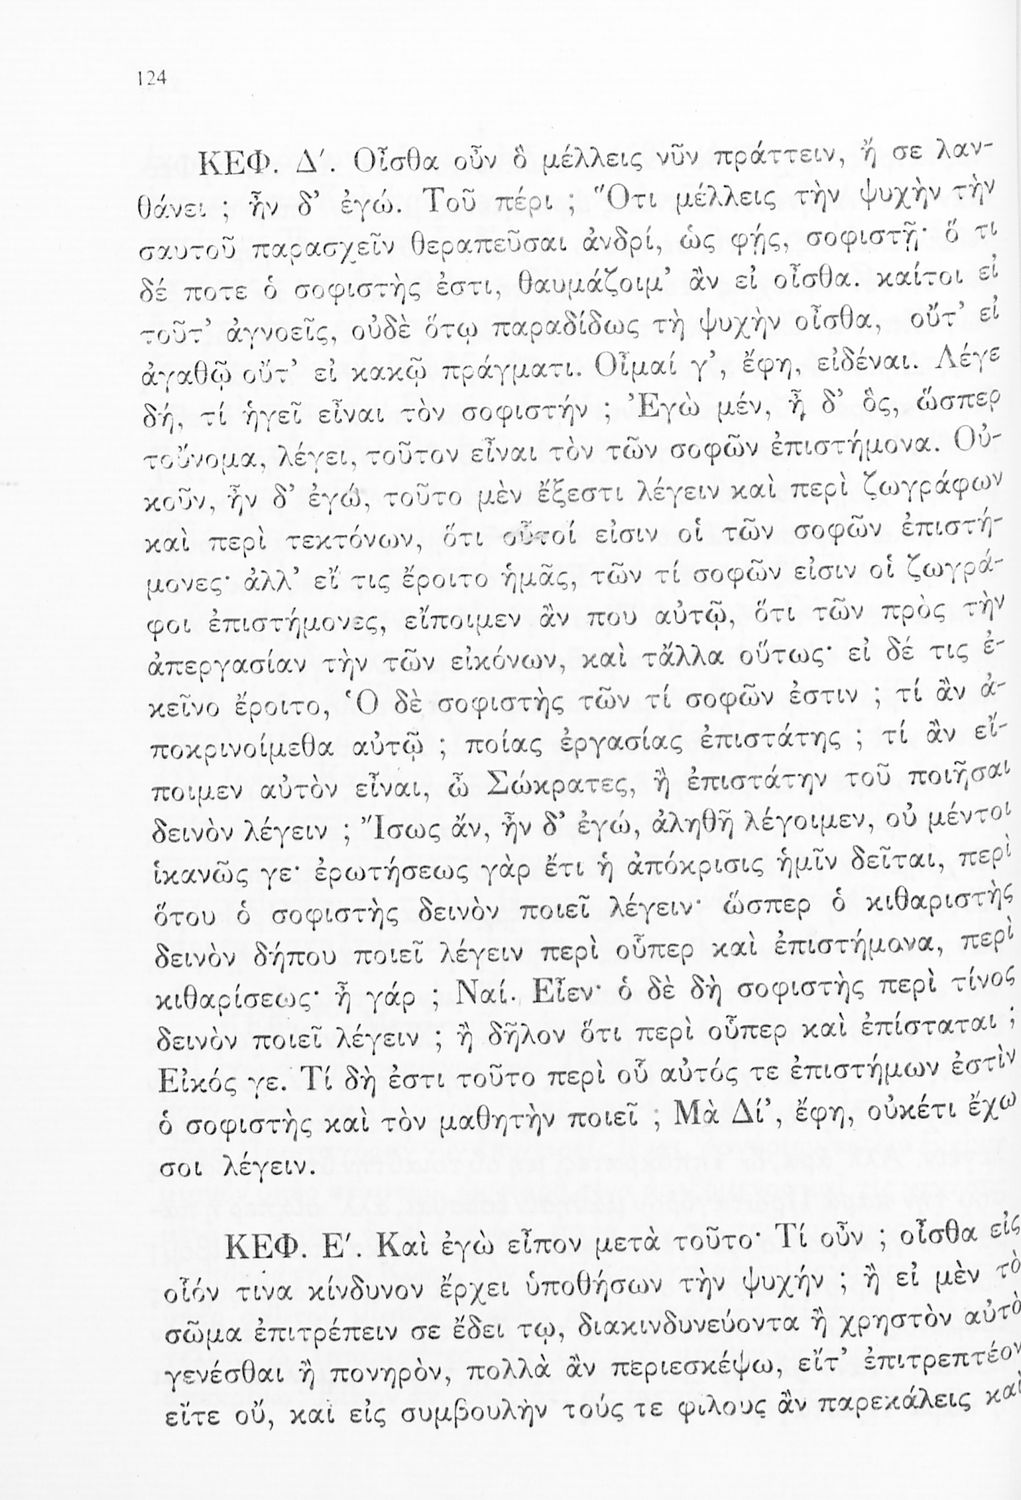 124
ΚΕΦ. Δ′. Οἶσθα οὖν ὃ μέλλεις νῦν πράττειν, ἤ σε λαν-
θάνει ; ἦν δ’ ἐγώ. Τοῦ πέρι ; Ὅτι μέλλεις τὴν ψυχὴν τὴν
σαυτοῦ παρασχεῖν θεραπεῦσαι ἀνδρί, ὡς φῄς, σοφιστῇ· ὅ τι
δέ ποτε ὁ σοφιστής ἐστι, θαυμάζοιμ’ ἂν εἰ οἶσθα. καίτοι εἰ
τοῦτ’ ἀγνοεῖς, οὐδὲ ὅτῳ παραδίδως τὴ ψυχὴν οἶσθα, οὔτ’ εἰ
ἀγαθῷ οὔτ’ εἰ κακῷ πράγματι. Οἶμαί γ’, ἔφη, εἰδέναι. Λέγε
δή, τί ἡγεῖ εἶναι τὸν σοφιστήν ; Ἐγὼ μέν, ἦ δ’ ὅς, ὥσπερ
τοὔνομα, λέγει, τοῦτον εἶναι τὸν τῶν σοφῶν ἐπιστήμονα. Οὐ-
κοῦν, ἦν δ’ ἐγώ, τοῦτο μὲν ἔξεστι λέγειν καὶ περὶ ζωγράφων
καὶ περὶ τεκτόνων, ὅτι οὗτοί εἰσιν οἱ τῶν σοφῶν ἐπιστή-
μονες· ἀλλ’ εἴ τις ἔροιτο ἡμᾶς, τῶν τί σοφῶν εἰσιν οἱ ζωγρά-
φοι ἐπιστήμονες, εἴποιμεν ἂν που αὐτῷ, ὅτι τῶν πρὸς τὴν
ἀπεργασίαν τὴν τῶν εἰκόνων, καὶ τἄλλα οὕτως· εἰ δέ τις ἐ-
κεῖνο ἔροιτο, Ὁ δὲ σοφιστὴς τῶν τί σοφῶν ἐστιν ; τί ἂν ἀ-
ποκρινοίμεθα αὐτῷ ; ποίας ἐργασίας ἐπιστάτης ; τί ἂν εἴ-
ποιμεν αὐτὸν εἶναι, ὦ Σώκρατες, ἢ ἐπιστάτην τοῦ ποιῆσαι
δεινὸν λέγειν ; Ἴσως ἄν, ἦν δ’ ἐγώ, ἀληθῆ λέγοιμεν, οὐ μέντοι
ἱκανῶς γε· ἐρωτήσεως γὰρ ἔτι ἡ ἀπόκρισις ἡμῖν δεῖται, περὶ
ὅτου ὁ σοφιστὴς δεινὸν ποιεῖ λέγειν· ὥσπερ ὁ κιθαριστὴς
δεινὸν δήπου ποιεῖ λέγειν περὶ οὗπερ καὶ ἐπιστήμονα, περὶ
κιθαρίσεως· ἦ γάρ ; Ναί. Εἶεν· ὁ δὲ δὴ σοφιστὴς περὶ τίνος
δεινὸν ποιεῖ λέγειν ; ἢ δῆλον ὅτι περὶ οὗπερ καὶ ἐπίσταται ;
Εἰκός γε. Τί δή ἐστι τοῦτο περὶ οὗ αὐτός τε ἐπιστήμων ἐστὶν
ὁ σοφιστὴς καὶ τὸν μαθητὴν ποιεῖ ; Μὰ Δί’, ἔφη, οὐκέτι ἔχω
σοι λέγειν.
ΚΕΦ. Ε′. Καὶ ἐγὼ εἶπον μετὰ τοῦτο· Τί οὖν ; οἶσθα εἰς
οἷόν τινα κίνδυνον ἔρχει ὑποθήσων τὴν ψυχήν ; ἢ εἰ μὲν τὸ
σῶμα ἐπιτρέπειν σε ἔδει τῳ, διακινδυνεύοντα ἢ χρηστὸν αὐτὸ
γενέσθαι ἢ πονηρὸν, πολλὰ ἂν περιεσκέψω, εἴτ’ ἐπιτρεπτέον
εἴτε οὔ, καὶ εἰς συμβουλὴν τούς τε φίλους ἂν παρεκάλεις καὶ